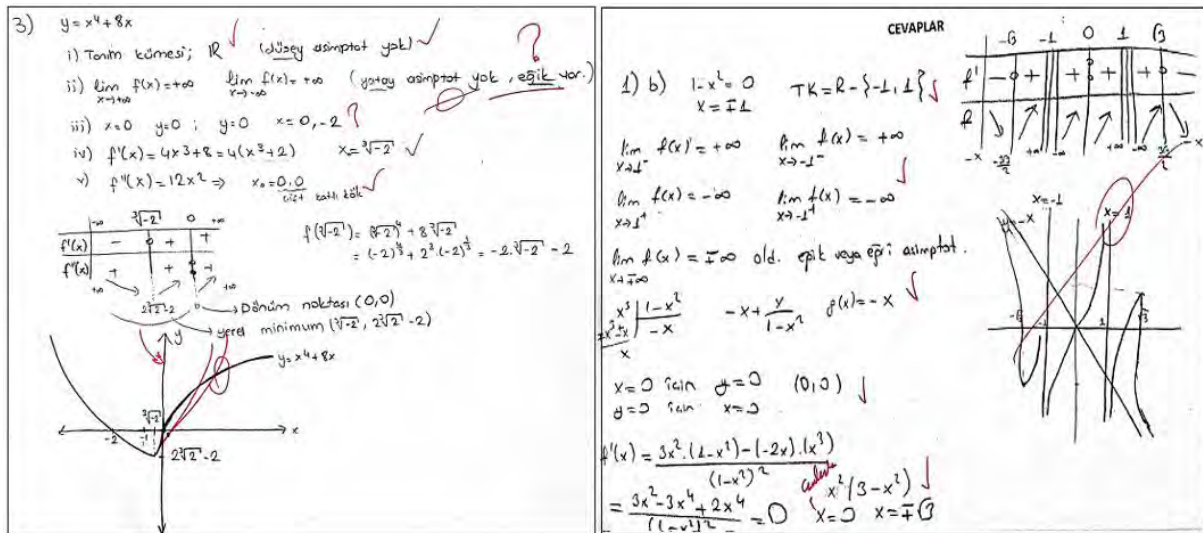 3) y = x⁴ + 8x
i) Tanım kümesi; ℝ (düşey asimptot yok)
?
ii) lim x→+∞ f(x) = +∞ lim x→-∞ f(x) = +∞ (yatay asimptot yok, eğik var.)
iii) x=0 y=0 ; y=0 x=0,-2 ?
iv) f'(x) = 4x³+8 = 4(x³+2) x = ∛-2
v) f''(x) = 12x² ⇒ x₀ = 0,0
çift katlı kök
-∞ ∛-2 0 +∞
f'(x) - 0 + +
f''(x) + + +
+∞ 2∛2-2 0 +∞
f(∛-2) = (∛-2)⁴ + 8∛-2
= (-2)^4/3 + 2³.(-2)^1/3 = -2.∛-2 - 2
Dönüm noktası (0,0)
yerel minimum (∛-2, 2∛2-2)
y
y = x⁴+8x
∛-2
-2 -1 x
2∛2-2
CEVAPLAR
-√3 -1 0 1 √3
f' - + + + + -
f
-x +∞ -∞ +∞ -∞ -x
1) b) 1-x² = 0 TK = R - {-1, 1}
x = ∓1
lim x→1⁻ f(x) = +∞ lim x→-1⁻ f(x) = +∞
lim x→1⁺ f(x) = -∞ lim x→-1⁺ f(x) = -∞
lim x→∓∞ f(x) = ∓∞ old. eğik veya eğri asimptot.
x³ | 1-x² -x + x/1-x² g(x) = -x
-x
x
x=0 için y=0 (0,0)
y=0 için x=0
f'(x) = 3x².(1-x²)-(-2x).(x³) / (1-x²)²
= 3x²-3x⁴+2x⁴ / (1-x²)² = 0 x²(3-x²)
x=0 x=∓√3
y=-x x=-1 x=1
-√3 -1 1 √3